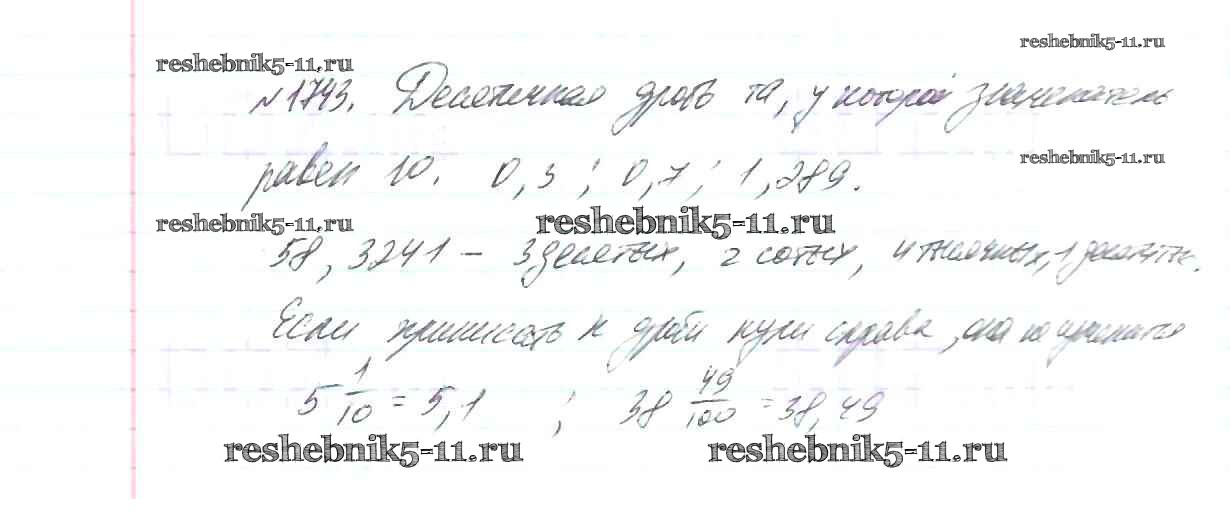 reshebnik5-11.ru
reshebnik5-11.ru
№ 1743. Десятичная дробь та, у которой знаменатель
равен 10. 0,3; 0,7; 1,289.
reshebnik5-11.ru
reshebnik5-11.ru
reshebnik5-11.ru
58,3241 – 3 десятых, 2 сотых, 4 тысячных, 1 десятитыс.
Если приписать к дроби нули справа, она не изменится
5 1/10 = 5,1 ; 38 49/100 = 38,49
reshebnik5-11.ru
reshebnik5-11.ru